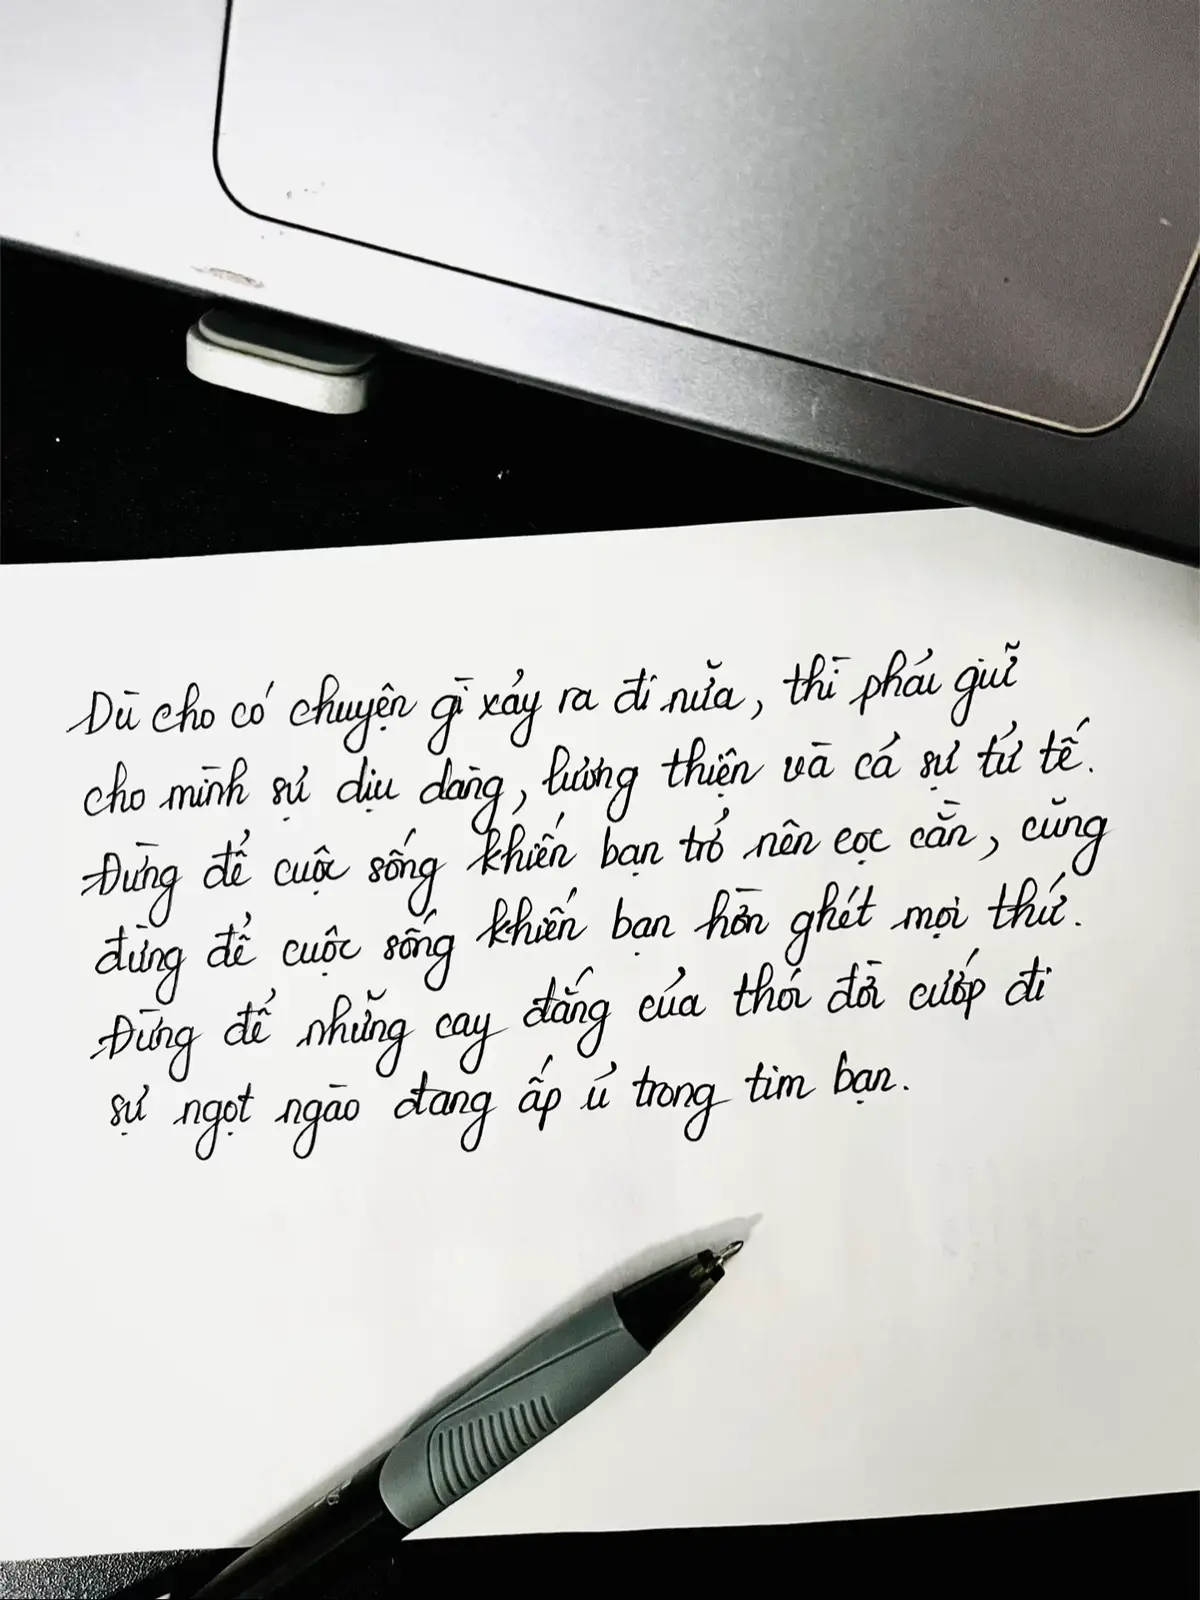 Dù cho có chuyện gì xảy ra đi nữa, thì phải giữ
cho mình sự dịu dàng, lương thiện và cả sự tử tế.
Đừng để cuộc sống khiến bạn trở nên cọc cằn, cũng
đừng để cuộc sống khiến bạn hờn ghét mọi thứ.
Đừng để những cay đắng của thói đời cướp đi
sự ngọt ngào đang ấp ủ trong tim bạn.